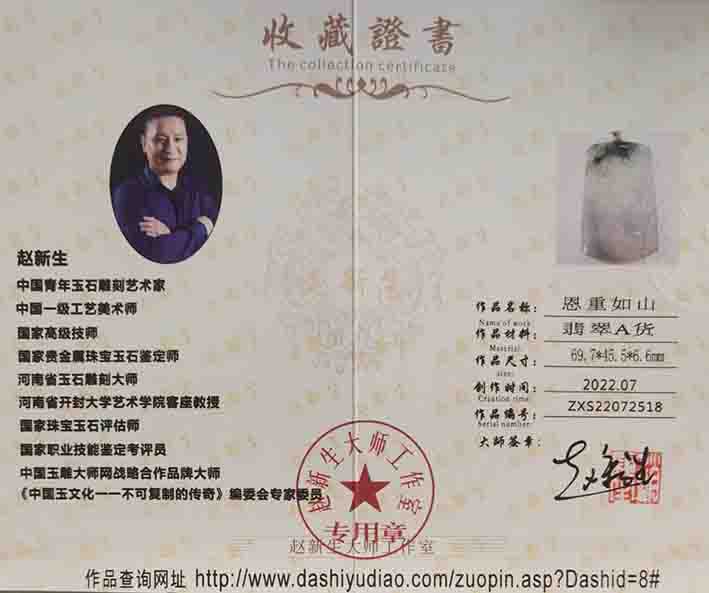 收藏證書
The collection certificate
赵新生
中国青年玉石雕刻艺术家
中国一级工艺美术师
国家高级技师
国家贵金属珠宝玉石鉴定师
河南省玉石雕刻大师
河南省开封大学艺术学院客座教授
国家珠宝玉石评估师
国家职业技能鉴定考评员
中国玉雕大师网战略合作品牌大师
《中国玉文化——不可复制的传奇》编委会专家委员
作品名称： 恩重如山
Name of work:
作品材料： 翡翠A货
Material:
作品尺寸： 69.7*45.5*6.6mm
size:
创作时间： 2022.07
Creation time:
作品编号： ZXS22072518
Serial number:
大师签章：
赵新生
赵新生大师工作室
专用章
赵新生大师工作室
作品查询网址 http://www.dashiyudiao.com/zuopin.asp?Dashid=8#